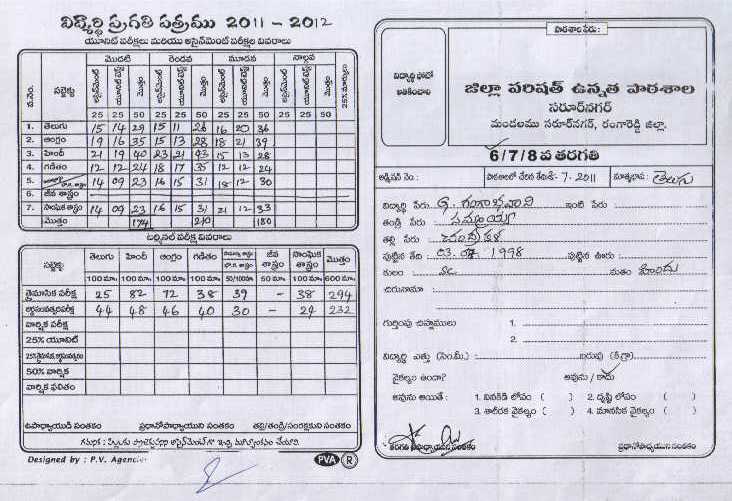 విద్యార్థి ప్రగతి పత్రము 2011 - 2012
యూనిట్ పరీక్షలు మరియు అసైన్‌మెంట్ పరీక్షల వివరాలు
వ.సం. సబ్జెక్టు మొదటి రెండవ మూడవ నాల్గవ 25% మార్కులు
అసైన్‌మెంట్ యూనిట్ టెస్ట్ మొత్తం అసైన్‌మెంట్ యూనిట్ టెస్ట్ మొత్తం అసైన్‌మెంట్ యూనిట్ టెస్ట్ మొత్తం అసైన్‌మెంట్ యూనిట్ టెస్ట్ మొత్తం
25 25 50 25 25 50 25 25 50 25 25 50
1. తెలుగు 15 14 29 15 11 26 16 20 36
2. ఆంగ్లం 19 16 35 15 13 28 18 21 39
3. హిందీ 21 19 40 23 21 43 15 13 28
4. గణితం 12 12 24 18 17 35 12 12 24
5. 14 09 23 16 15 31 18 12 30
6. జీవ శాస్త్రం
7. సాంఘిక శాస్త్రం 14 09 23 16 15 31 21 12 33
మొత్తం 174 210 180
టెర్మినల్ పరీక్ష వివరాలు
సబ్జెక్టు తెలుగు హిందీ ఆంగ్లం గణితం జీవ శాస్త్రం సాంఘిక శాస్త్రం మొత్తం
100 మా. 100 మా. 100 మా. 100 మా. 50/100మా. 50 మా. 100 మా. 600 మా.
త్రైమాసిక పరీక్ష 25 82 72 38 39 - 38 294
అర్థసంవత్సరపరీక్ష 44 48 46 40 30 - 24 232
వార్షిక పరీక్ష
25% యూనిట్
25% త్రైమాసిక, అర్థసంవత్సర
50% వార్షిక
వార్షిక ఫలితం
ఉపాధ్యాయుడి సంతకం ప్రధానోపాధ్యాయుని సంతకం తల్లి/తండ్రి/సంరక్షకుని సంతకం
Designed by : P.V. Agencies PVA R
పాఠశాల పేరు:
విద్యార్థి ఫోటో అతికించాలి
జిల్లా పరిషత్ ఉన్నత పాఠశాల
సరూర్‌నగర్
మండలము సరూర్‌నగర్, రంగారెడ్డి జిల్లా.
6/7/8 వ తరగతి
అడ్మిషన్ నెం.: పాఠశాలలో చేరిన తేది: -7-2011 మాతృభాష: తెలుగు
విద్యార్థి పేరు G. గంగాభవాని ఇంటి పేరు
తండ్రి పేరు
తల్లి పేరు
పుట్టిన తేది 03.07.1998 పుట్టిన ఊరు:
కులం sc మతం హిందు
చిరునామా :
గుర్తింపు చిహ్నములు 1.
2.
విద్యార్థి ఎత్తు (సెం.మీ.) : బరువు (కి.గ్రా)
వైకల్యం ఉందా? అవును / కాదు
అవును అయితే : 1. వినికిడి లోపం ( ) 2. దృష్టి లోపం ( )
3. శారీరక వైకల్యం ( ) 4. మానసిక వైకల్యం ( )
తరగతి ఉపాధ్యాయుని సంతకం ప్రధానోపాధ్యాయుని సంతకం